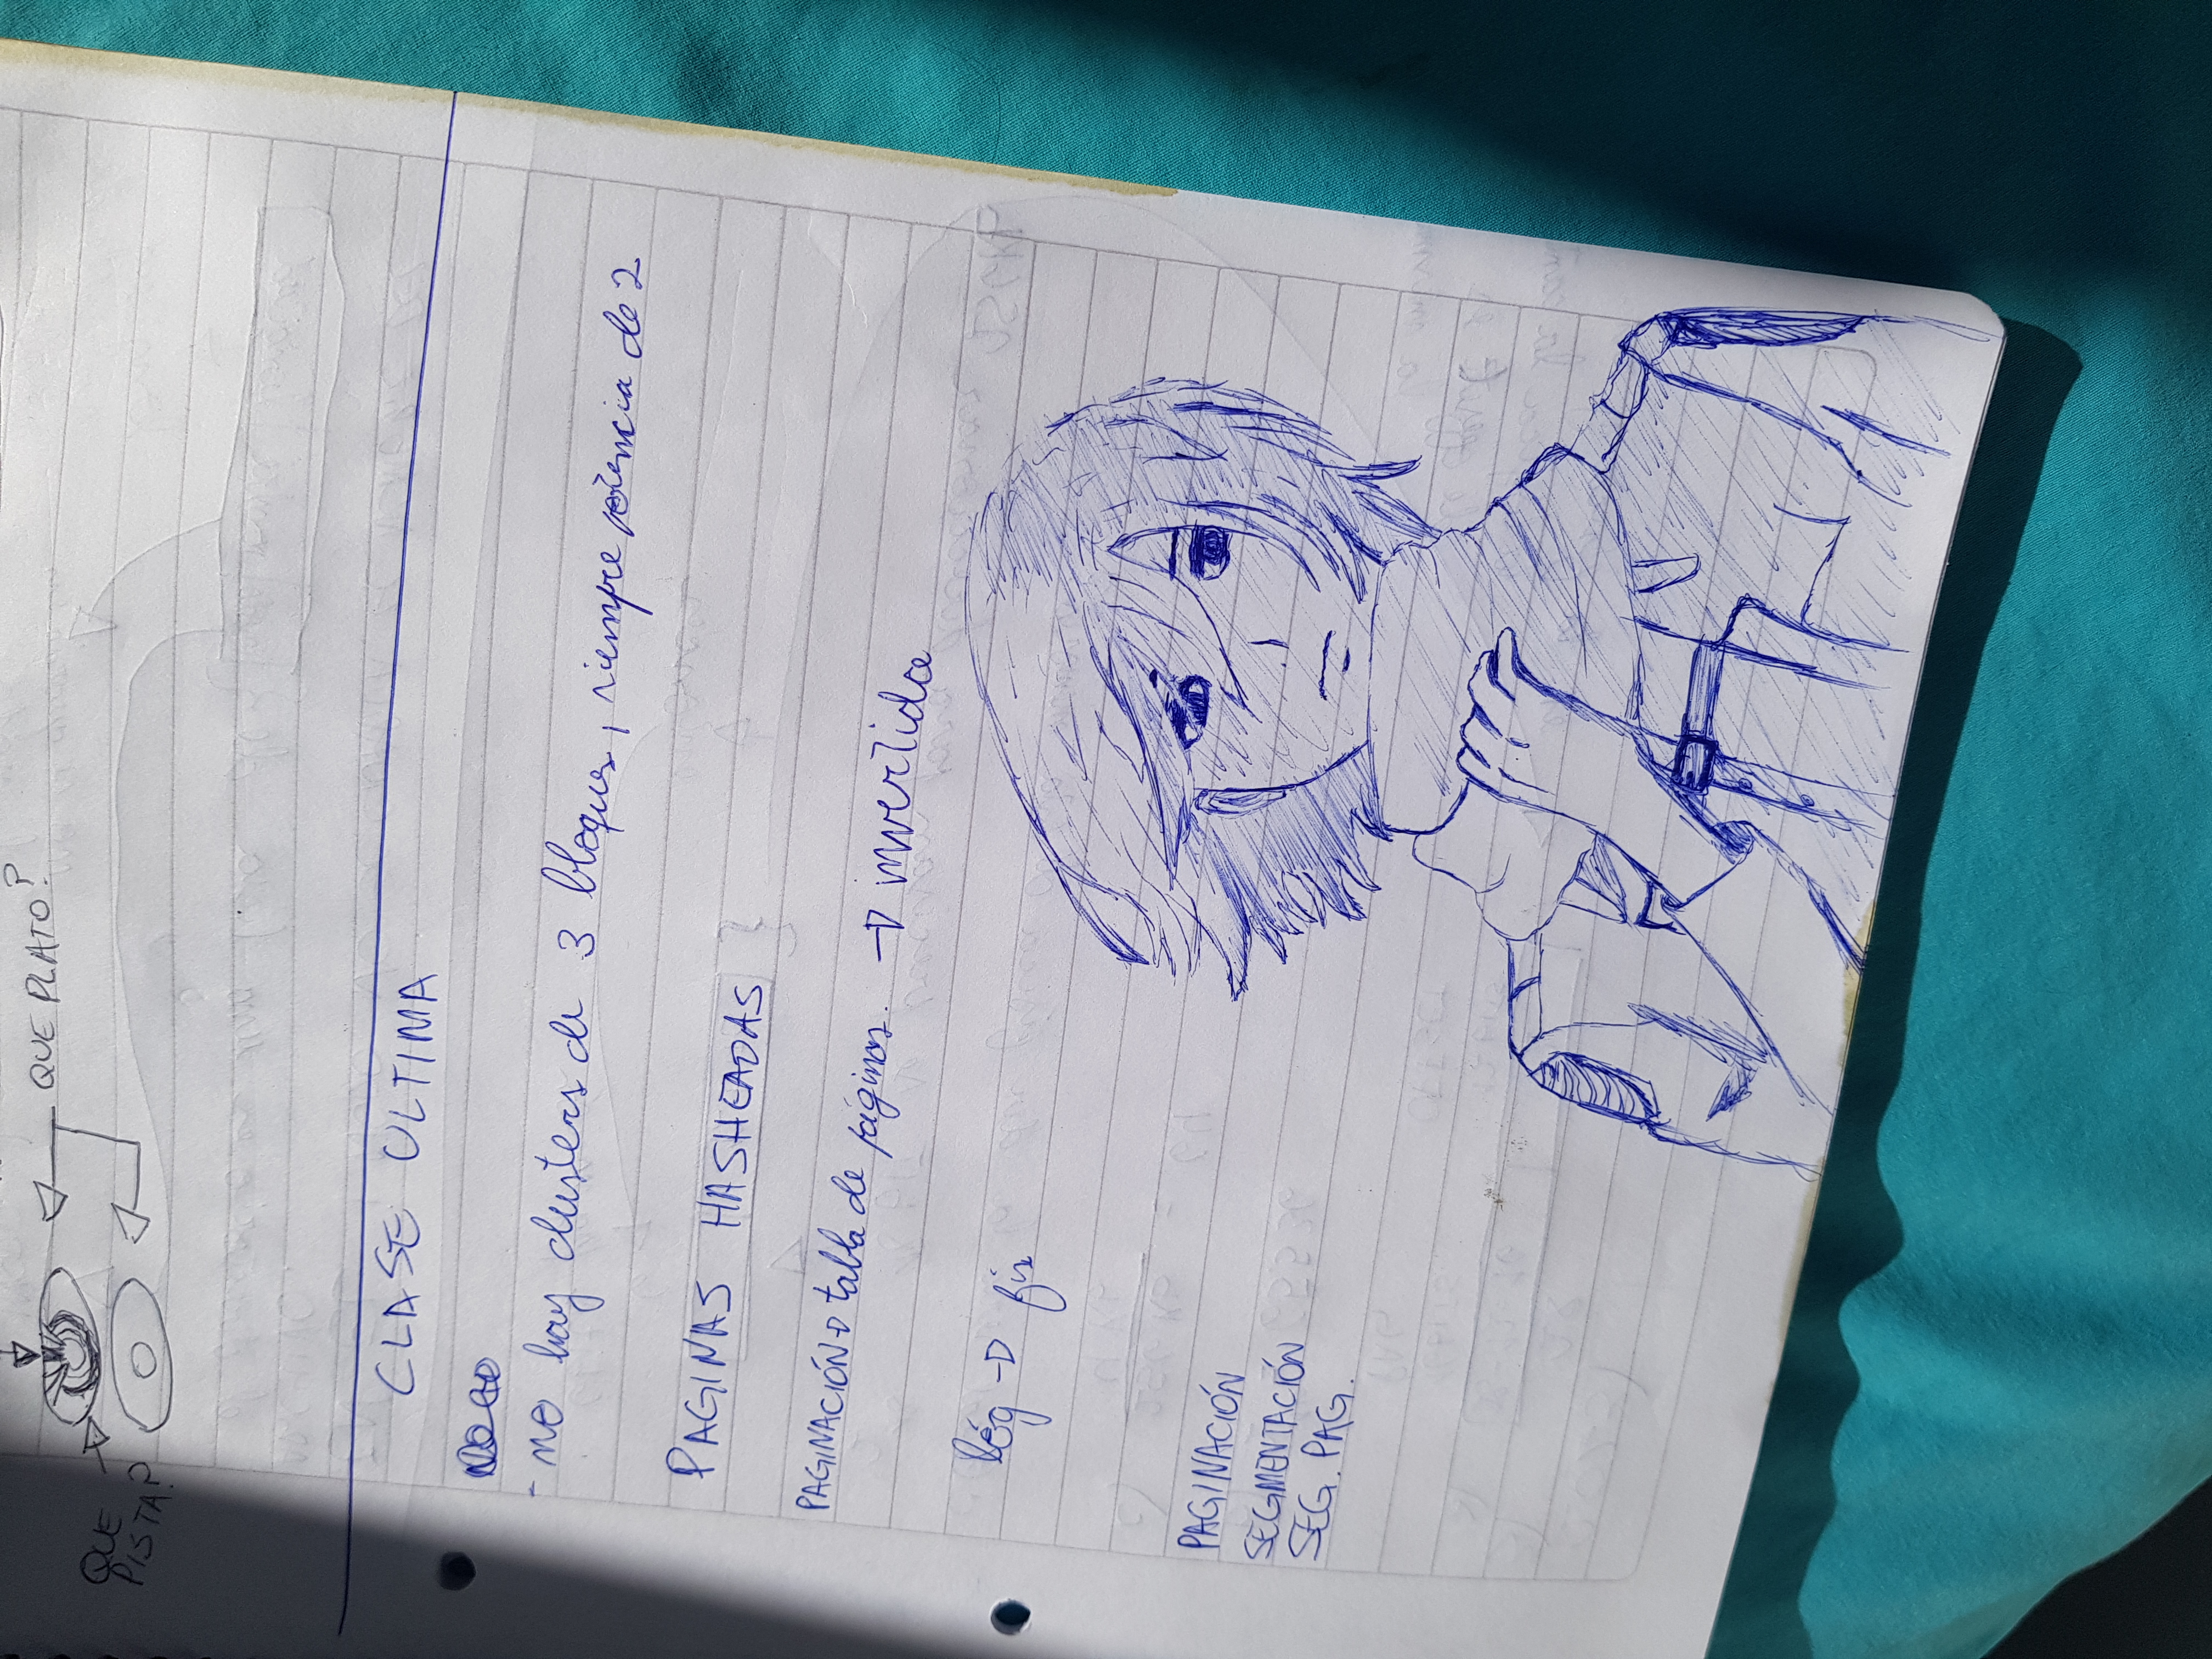 QUE PLATO?
QUE
PISTA?
CLASE ULTIMA
- no hay clusters de 3 bloques, siempre potencia de 2
PAGINAS HASHEADAS
PAGINACIÓN → tabla de páginas. → invertida
lóg → fis
PAGINACIÓN
SEGMENTACIÓN
SEG. PAG.